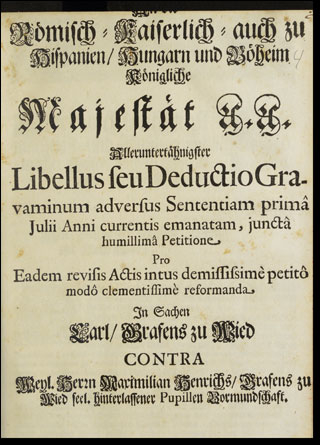 An die
Römisch-Kaiserlich-auch zu
Hispanien/ Hungarn und Böheim
Königliche
Majestät A.A.
Alleruntertähnigster
Libellus seu Deductio Gra-
vaminum adversus Sententiam primâ
Julii Anni currentis emanatam, junctâ
humillimâ Petitione
Pro
Eadem revisis Actis intus demissîssimè petitô
modô clementissimè reformanda.
In Sachen
Carl/ Grafens zu Wied
CONTRA
Weyl. Herrn Maximilian Henrichs/ Grafens zu
Wied seel. hinterlassener Pupillen Vormundschaft.